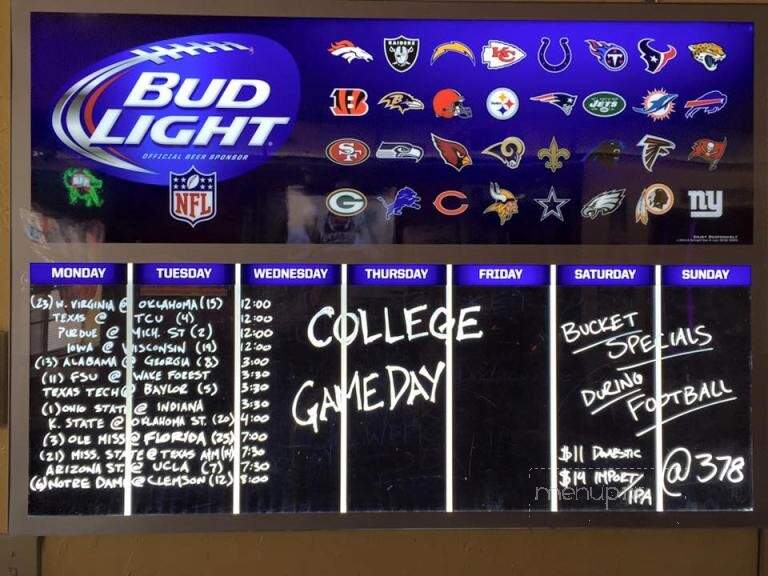 BUD
LIGHT
OFFICIAL BEER SPONSOR
NFL
RAIDERS
KC
JETS
SF
G
C
ny
ENJOY RESPONSIBLY
MONDAY TUESDAY WEDNESDAY THURSDAY FRIDAY SATURDAY SUNDAY
(23) W. VIRGINIA @ OKLAHOMA (15) 12:00
TEXAS @ TCU (4) 12:00
PURDUE @ MICH. ST (2) 12:00
IOWA @ WISCONSIN (19) 12:00
(13) ALABAMA @ GEORGIA (8) 3:00
(11) FSU @ WAKE FOREST 3:30
TEXAS TECH @ BAYLOR (5) 3:30
(1) OHIO STATE @ INDIANA 3:30
K. STATE @ OKLAHOMA ST. (20) 4:00
(3) OLE MISS @ FLORIDA (25) 7:00
(21) MISS. STATE @ TEXAS A/M (14) 7:30
ARIZONA ST. @ UCLA (7) 7:30
(6) NOTRE DAME @ CLEMSON (12) 8:00
COLLEGE
GAMEDAY
BUCKET
SPECIALS
DURING
FOOTBALL
$11 DOMESTIC
$14 IMPORT/
IPA
@ 378
menupix